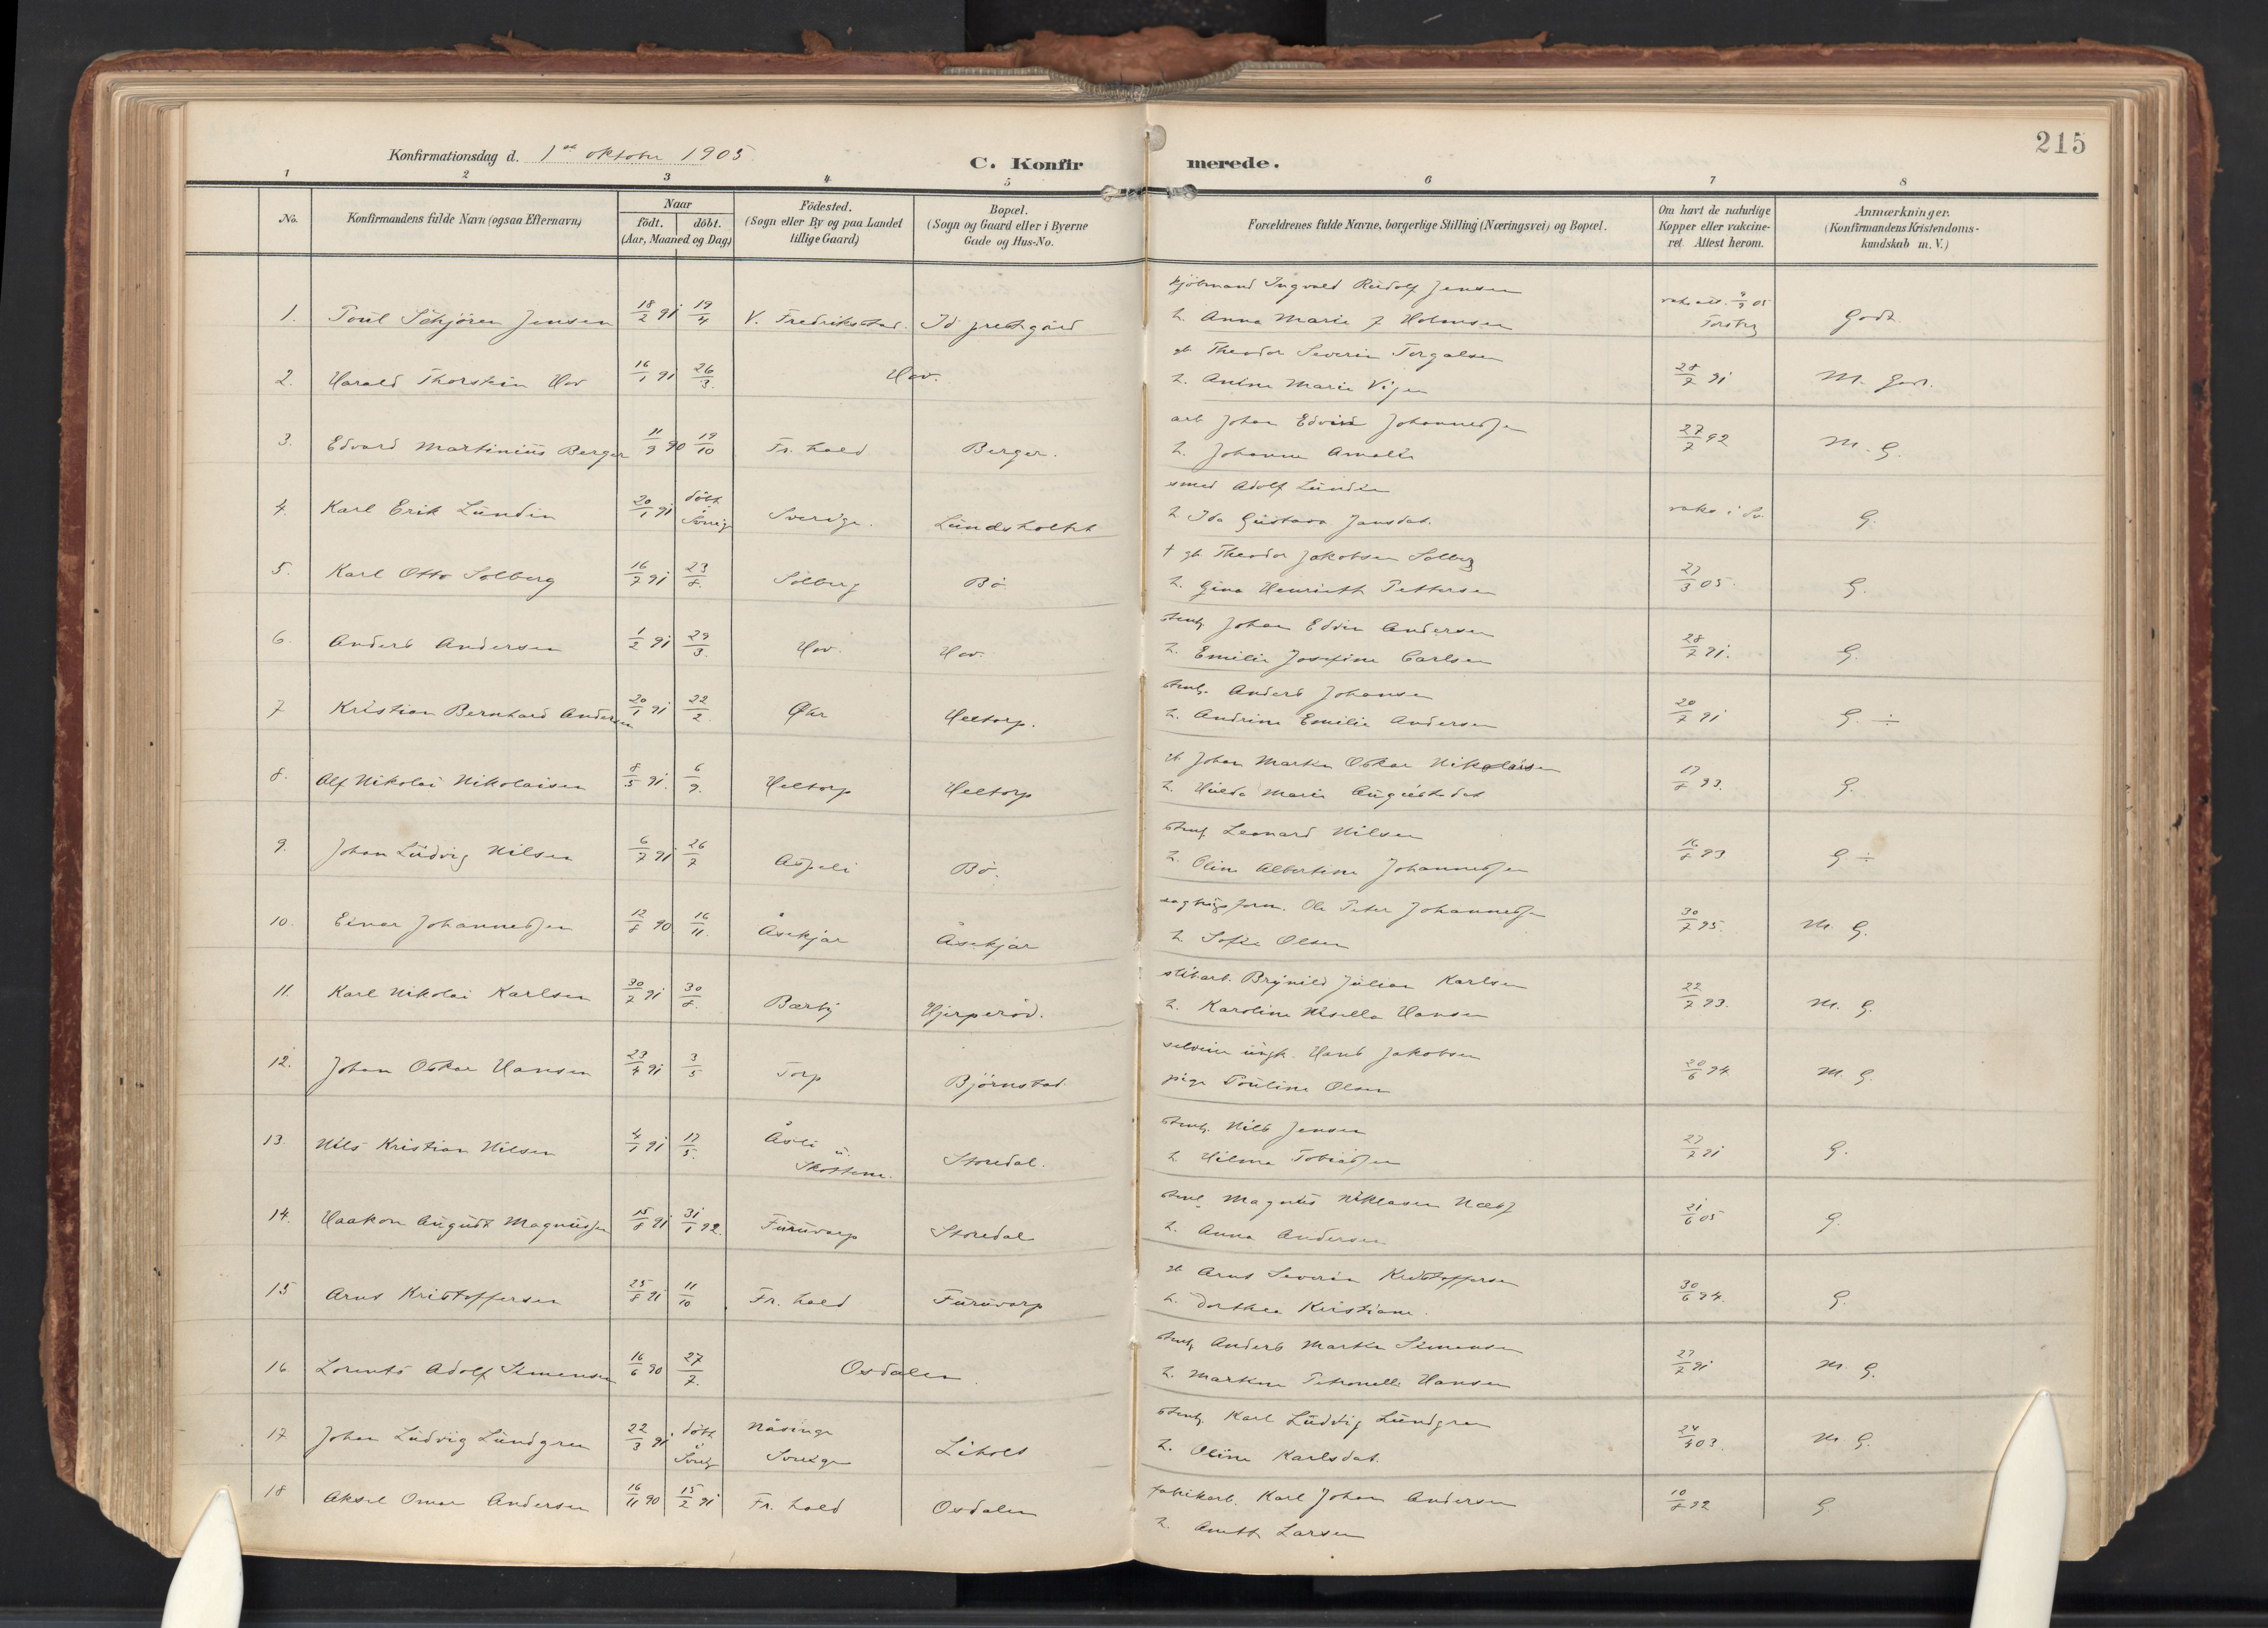 215
Konfirmationsdag d. 1ste oktober 1905
C. Konfirmerede.
1 2 3 4 5 6 7 8
No.
Konfirmandens fulde Navn (ogsaa Efternavn)
Naar
födt. döbt.
(Aar, Maaned og Dag)
Födested.
(Sogn eller By og paa Landet
tillige Gaard)
Bopæl.
(Sogn og Gaard eller i Byerne
Gade og Hus-No.
Forældrenes fulde Navne, borgerlige Stilling (Næringsvei) og Bopæl.
Om havt de naturlige
Kopper eller vakcine-
ret. Attest herom.
Anmærkninger.
(Konfirmandens Kristendoms-
kundskab m. V.)
Ingvald Rudolf Jensen
1. Jensen 18/2 91 19/4 V. Fredrikstad. Id prestgård h. Anna Marie J Holmsen Godt
Theodor Severin Torgalsen
2. Harald Thorstein Hov 16/1 91 26/3. Hov. h. Anine Marie 28/7 91 M. Godt.
arb Johan Edvin Johannessen
3. Edvard Martinius Berger 11/9 90 19/10 Fr. hald Berger. h. Johanne Amalie 27/7 92 M. G.
smed Adolf Lundin
4. Karl Erik Lundin 20/1 91 döbt i Sverig Sverige. h. Ida Gustava Jansdat. vaks i Sv. G.
† gb. Theodor Jakobsen Solberg
5. Karl Otto Solberg 16/7 91 23/8. Solberg Bö. h. Gina Henriette Pettersen 27/3 05. G.
stenh. Johan Edvin Andersen
6. Anders Andersen 1/2 91 29/3. Hov. Hov. h. Emilie Josefine Carlsen 28/7 91. G.
stenh. Anders Johansen
7 Kristian Bernhard Andersen 20/1 91 22/2. Heltorp. h. Andrine Emilie Andersen 20/7 91 G. ÷
Johan Martin Oskar Nikolaisen
8. Alf Nikolai Nikolaisen 8/5 91. 6/9. Heltorp Heltorp h. Hulda Marie Augustsdat 17/8 93. G.
stenh Leonard Nilsen
9. Johan Ludvig Nilsen 6/7 91 26/7 Aspeli Bö. h. Oline Albertine Johannessen 16/8 93 G ÷
Ole Peter Johannessen
10. Einar Johannessen 12/8 90 16/11. Åsekjær Åsekjær h. Sofie Olsen 30/7 95. M. G.
slibarb. Brynild Julian Karlsen
11. Karl Nikolai Karlsen 30/7 91 30/8. Bærby Hjerperöd. h. Karoline Hansen 22/7 93. M. G.
ungk. Hans Jakobsen
12. Johan Oskar Hansen 23/4 91 3/5 Torp Björnstad. pige Pouline Olsen 20/6 94 M. G.
stenh. Nils Jensen
13. Nils Kristian Nilsen 4/1 91 17/5. Åsli u. Skottene. Storedal. h Hilma Tobiassen 27/7 91 G.
stenh Magnus Niklasen Næss
14. Haakon August Magnussen 15/8 91 31/1 92. Furuvarp Storedal h. Anna Andersen 21/6 05 G.
gb Arns Severin Kristoffersen
15 Arns Kristoffersen 25/8 91 11/10 Fr. hald Furuvarp h. Dorthea Kristiane. 30/6 94. G.
stenh Anders Martin Simensen
16 Lorents Adolf Simensen 16/6 90 27/7. Osdalen. h. Martine Petronelle Hansen 27/7 91 M. G.
stenh. Karl Ludvig Lundgren
17 Johan Ludvig Lundgren 22/3 91. döbt i Sverig Näsinge Sverige Liholt h. Oline Karlsdat. 24/4 03. M. G.
fabrikarb. Karl Johan Andersen
18 Aksel Omar Andersen 16/11 90 15/2 91 Fr. hald Osdalen 10/8 92 G.
h. Anette Larsen